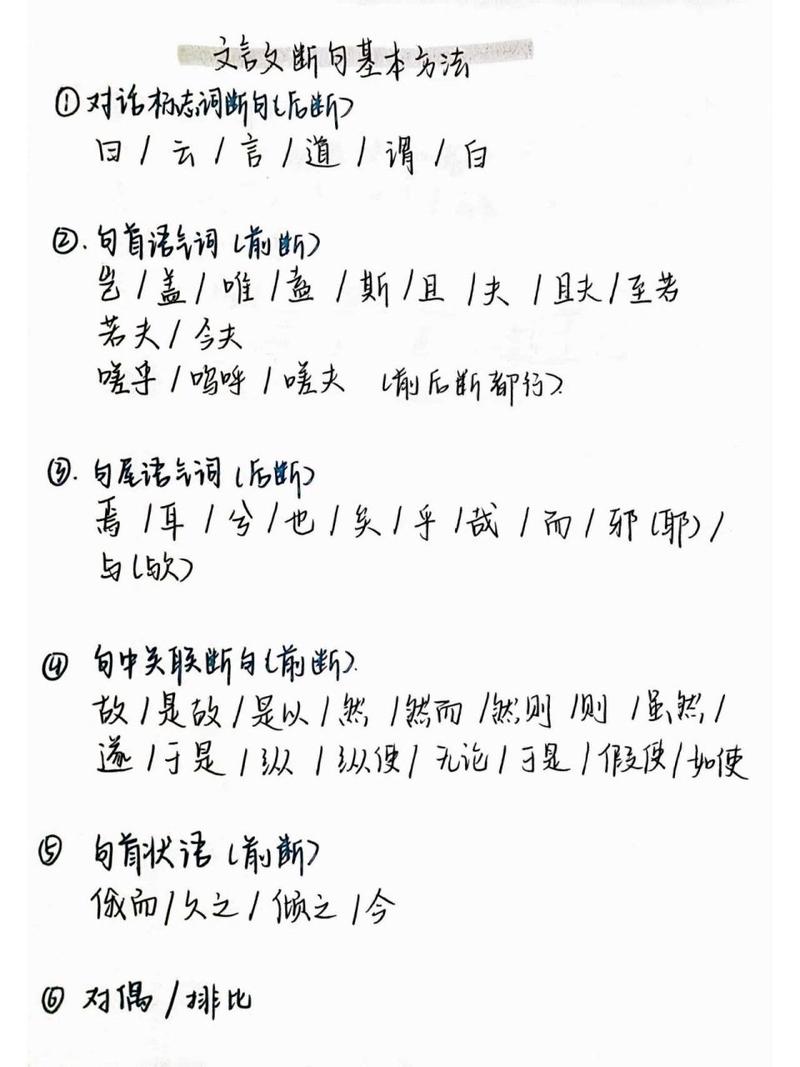 文言文断句基本方法
①对话标志词断句(后断)
曰/云/言/道/谓/白
②.句首语气词(前断)
岂/盖/唯/盍/斯/且/夫/且夫/至若
若夫/今夫
嗟乎/呜呼/嗟夫 (前后断都行).
③.句尾语气词(后断)
焉/耳/兮/也/矣/乎/哉/而/邪(耶)/
与(欤)
④ 句中关联断句(前断).
故/是故/是以/然/然而/然则/则/虽然/
遂/于是/纵/纵使/无论/于是/假使/如使
⑤ 句首状语(前断)
俄而/久之/倾之/今
⑥ 对偶/排比